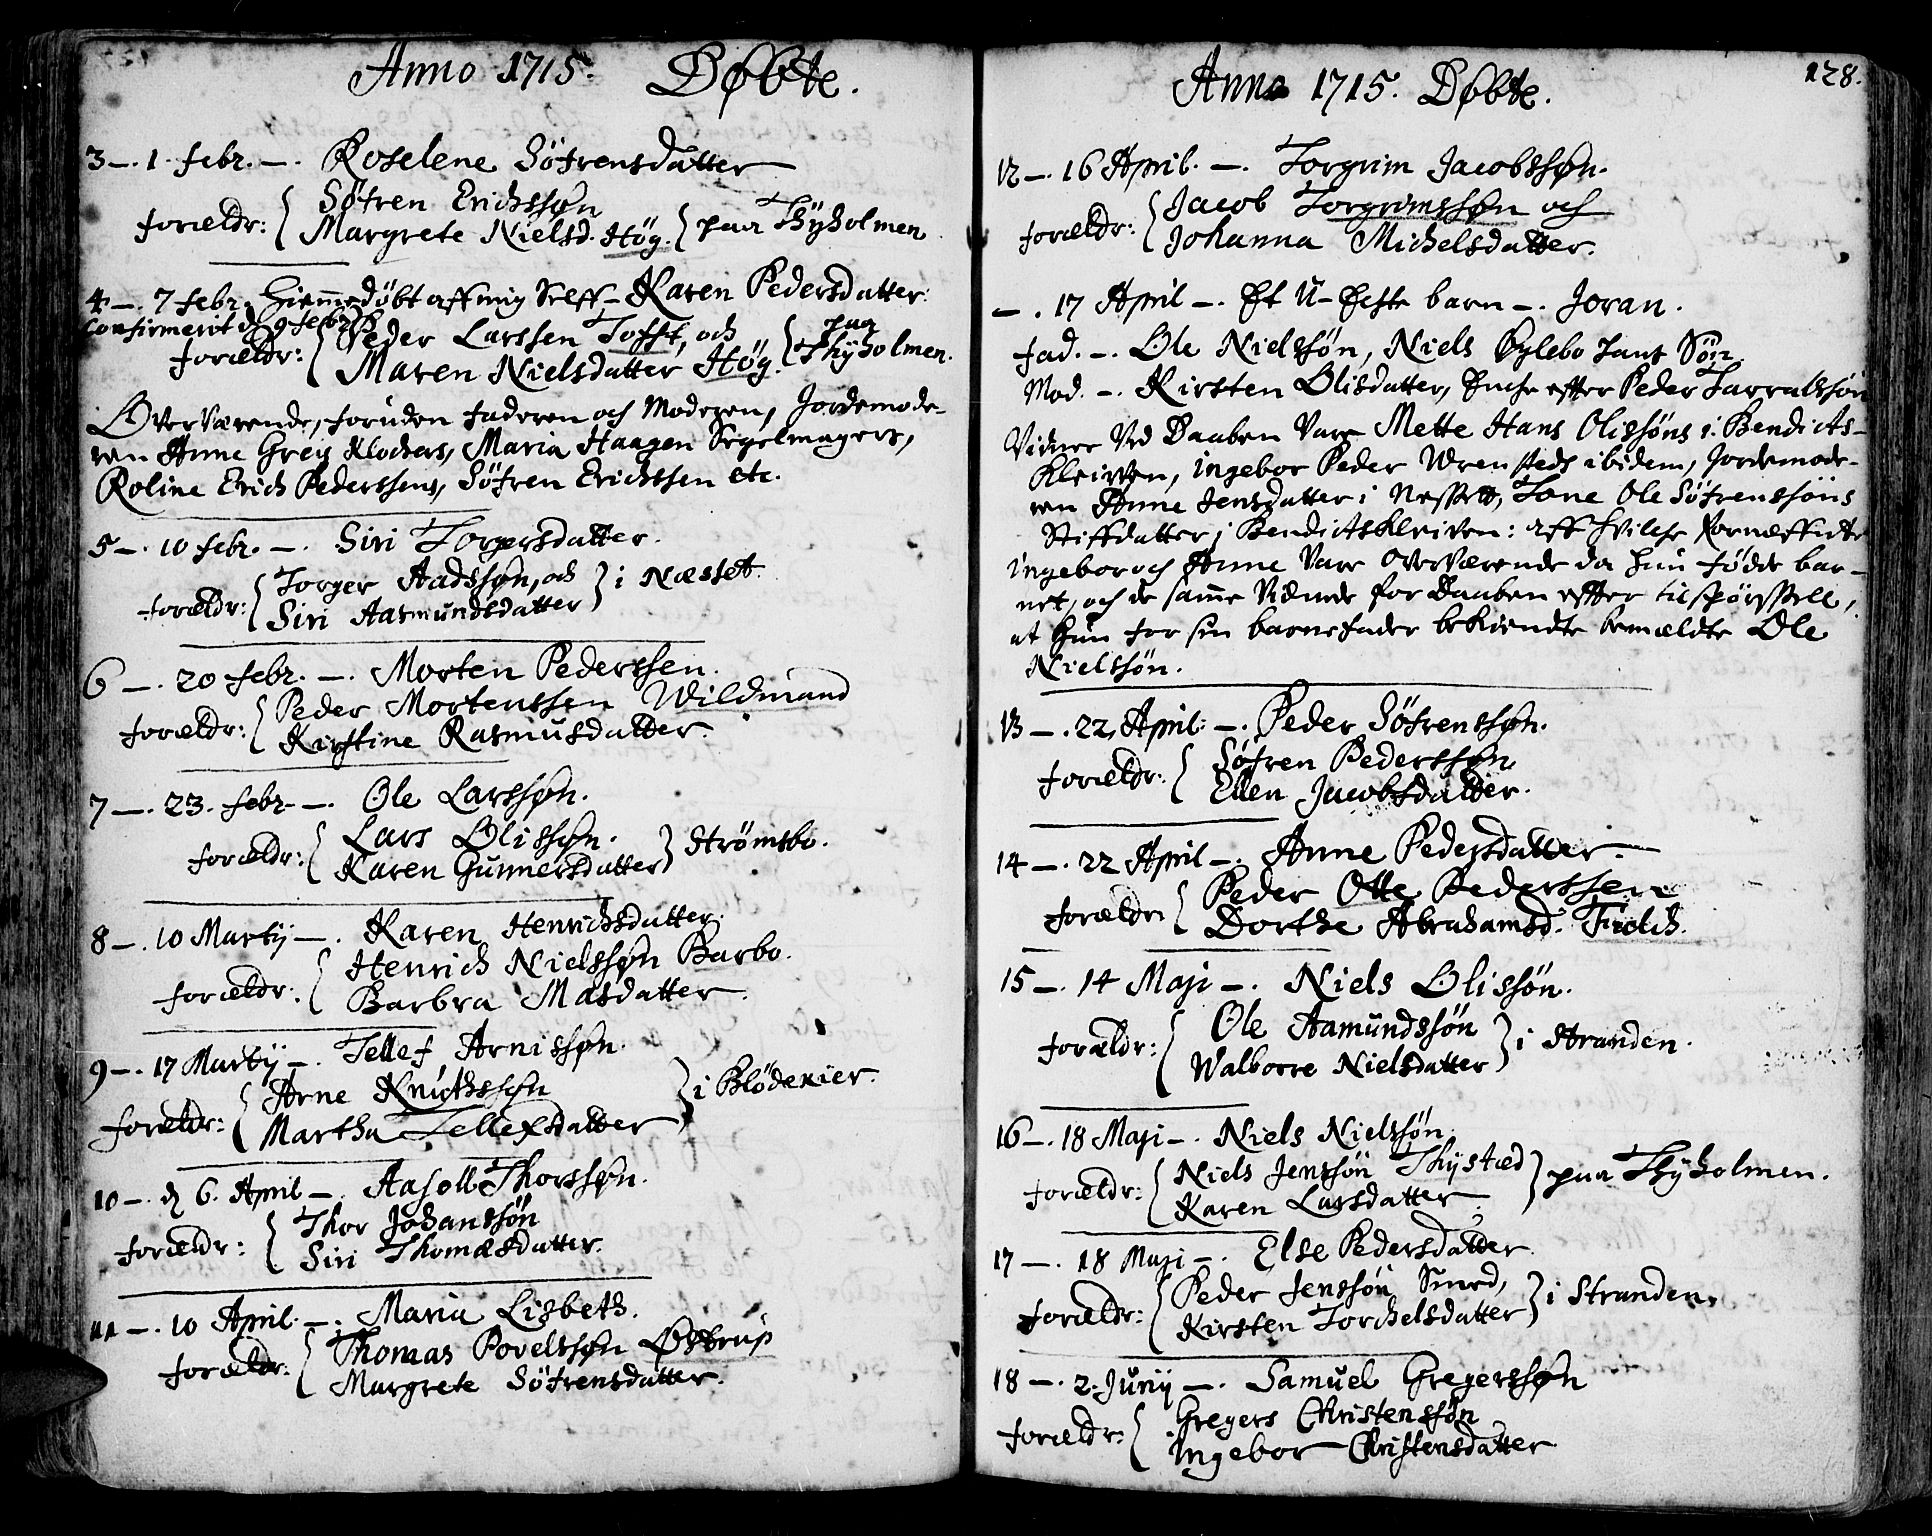 Anno 1715. Døbte.
3 –. 1. febr. –. Roselene Söfrensdatter
forældr: Söfren Erichssøn
Margrete Nielsd. Høg. paa Thÿholmen
4 –. 7 febr. Hiemmedöbt aff mig Selff – Karen Pedersdatter.
Confirmerit d. 9 febr.
forældr: Peder Larssen Tofft, och
Maren Nielsdatter Høg. paa Thÿholmen.
Overværende, foruden faderen och Moderen, Jordemode-
ren Anne Greg Klockers, Maria Haagen Segelmagers,
Roline Erich Pederssens, Söfren Erichssen etc.
5 –. 10 febr. –. Siri Torgersdatter.
forældr: Torger Aadssøn, och
Siri Aasmundsdatter i Næsset.
6 –. 20 febr. –. Morten Pederssen.
forældr: Peder Mortenssen Wildmand
Kirstine Rasmusdatter.
7 –. 23. febr. –. Ole Larssøn.
forældr: Lars Olissøn.
Karen Gunnersdatter Strömsbo.
8 –. 10 Martij –. Karen Henrichsdatter.
forældr: Henrich Nielssøn Barbo.
Barbra Masdatter.
9 –. 17 Martij –. Tellef Arnissøn.
forældr: Arne Knuthssøn
Martha Tellefsdatter i Blödekier.
10 –. d 6. April –. Aasoll Thorssøn.
forældr: Thor Johanssön
Siri Thomæsdatter.
11 –. 10 April. –. Maria Lisbeth.
forældr: Thomas Povelssøn Østrup
Margrete Söfrensdatter.
128.
Anno 1715. Døbte.
12 –. 16 April. –. Torgrim Jacobssøn.
forældr: Jacob Torgrimssøn och
Johanna Michelsdatter.
–. 17 April –. Et U-Echte barn –. Joran.
fad. –. Ole Nielssön, Niels Øylebo hans Sön.
Mod. –. Kirsten Olisdatter, Enche effter Peder Tarralssön
Vidner Ved Daaben Vare Mette Hans Olissöns i Bendicts-
Kleiven, ingebor Peder Wrensteds ibidem, Jordemode-
ren Anne Jensdatter i Nesset, Tone Ole Söfrenssöns
Stiffdatter i Bendictskleiven: aff hvilche fornæffnte
ingebor och Anne Vare overværende da hun födde bar-
net, och de samme Vidnede for Daaben effter tilspörssell,
at hun for sin barnefader bekiendte bemældte Ole
Nielssön.
13 –. 22 April: –. Peder Söfrenssøn.
forældr: Söfren Pederssøn
Ellen Jacobsdatter.
14 –. 22 April –. Anne Pedersdatter.
forældr: Peder Otte Pederssen
Dorthe Abrahamsd. Firelich.
15 –. 14 Maji –. Niels Olissön.
forældr: Ole Aamundssön
Walborre Nielsdatter i Stranden.
16 –. 18 Maji –. Niels Nielssön.
forældr: Niels Jenssön Thystæd
Karen Larsdatter paa Thyholmen.
17 –. 18 Maji –. Else Pedersdatter.
forældr: Peder Jenssön Smed,
Kirsten Torchelsdatter i Stranden.
18 –. 2. Junij –. Samuel Gregerssøn
forældr: Gregers Christenssön
Ingebor Christensdatter